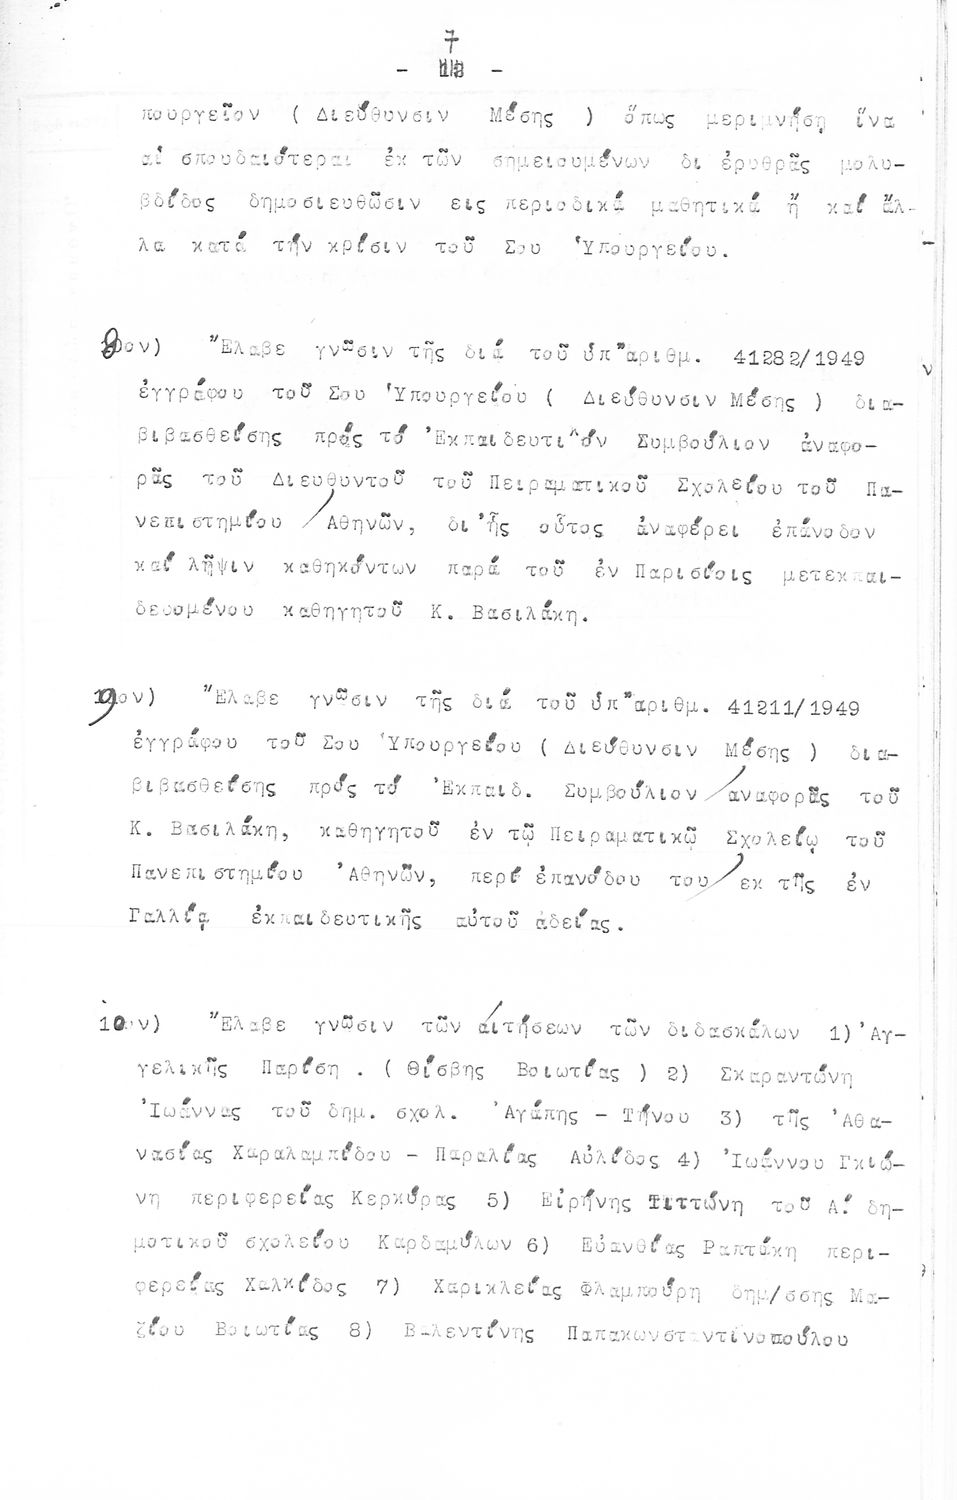 7
- 118 -
πουργεῖον ( Διεύθυνσιν Μέσης ) ὅπως μεριμνήσῃ ἵνα
αἱ σπουδαιότεραι ἐκ τῶν σημειουμένων δι ἐρυθρᾶς μολυ-
βδίδος δημοσιευθῶσιν εις περιοδικά μαθητικά ἤ καί ἄλ-
λα κατά τήν κρίσιν τοῦ Σου Ὑπουργείου.
8ον) Ἔλαβε γνῶσιν τῆς διά τοῦ ὑπ'ἀριθμ. 41282/1949
ἐγγράφου τοῦ Σου Ὑπουργείου ( Διεύθυνσιν Μέσης ) δια-
βιβασθείσης πρός τό Ἐκπαιδευτικόν Συμβούλιον ἀναφο-
ρᾶς τοῦ Διευθυντοῦ τοῦ Πειραματικοῦ Σχολείου τοῦ Πα-
νεπιστημίου Ἀθηνῶν, δι'ἧς οὗτος ἀναφέρει ἐπάνοδον
καί λῆψιν καθηκόντων παρά τοῦ ἐν Παρισίοις μετεκπαι-
δευομένου καθηγητοῦ Κ. Βασιλάκη.
9ον) Ἔλαβε γνῶσιν τῆς διά τοῦ ὑπ'ἀριθμ. 41211/1949
ἐγγράφου τοῦ Σου Ὑπουργείου ( Διεύθυνσιν Μέσης ) δια-
βιβασθείσης πρός τό Ἐκπαιδ. Συμβούλιον ἀναφορᾶς τοῦ
Κ. Βασιλάκη, καθηγητοῦ ἐν τῷ Πειραματικῷ Σχολείῳ τοῦ
Πανεπιστημίου Ἀθηνῶν, περί ἐπανόδου του ἐκ τῆς ἐν
Γαλλίᾳ ἐκπαιδευτικῆς αὐτοῦ ἀδείας.
10ον) Ἔλαβε γνῶσιν τῶν αἰτήσεων τῶν διδασκάλων 1) Ἀγ-
γελικῆς Παρίση . ( Θίσβης Βοιωτίας ) 2) Σκαραντώνη
Ἰωάννας τοῦ δημ. σχολ. Ἀγάπης - Τήνου 3) τῆς Ἀθα-
νασίας Χαραλαμπίδου - Παραλίας Αὐλίδος 4) Ἰωάννου Γκιώ-
νη περιφερείας Κερκύρας 5) Εἰρήνης Τιττώνη τοῦ Α! δη-
μοτικοῦ σχολείου Καρδαμύλων 6) Εὐανθίας Ραπτάκη περι-
φερείας Χαλκίδος 7) Χαρικλείας Φλαμπούρη δημ/σσης Μα-
ζίου Βοιωτίας 8) Βαλεντίνης Παπακωνσταντινοπούλου